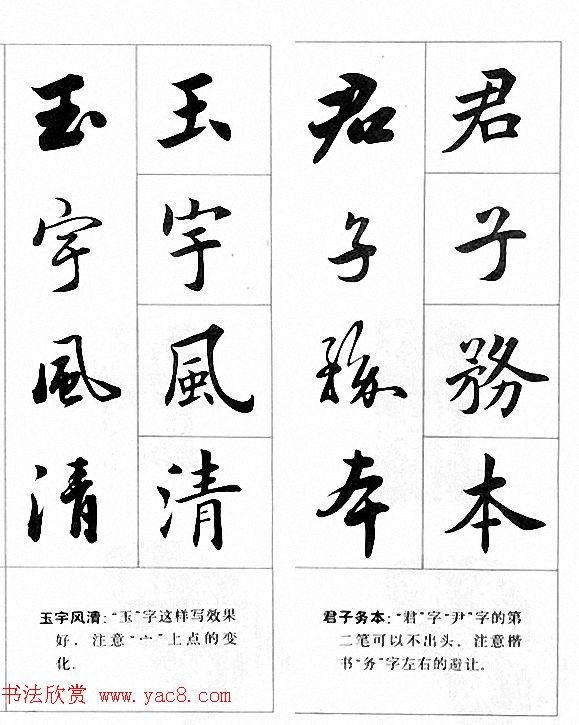 君子務本
君子務本
君子务本：“君”字“尹”字的第
二笔可以不出头．注意楷
书“务”字左右的避让．
玉宇風清
玉宇風清
玉宇风清：“玉”字这样写效果
好．注意“宀”上点的变
化．
书法欣赏 www.yac8.com